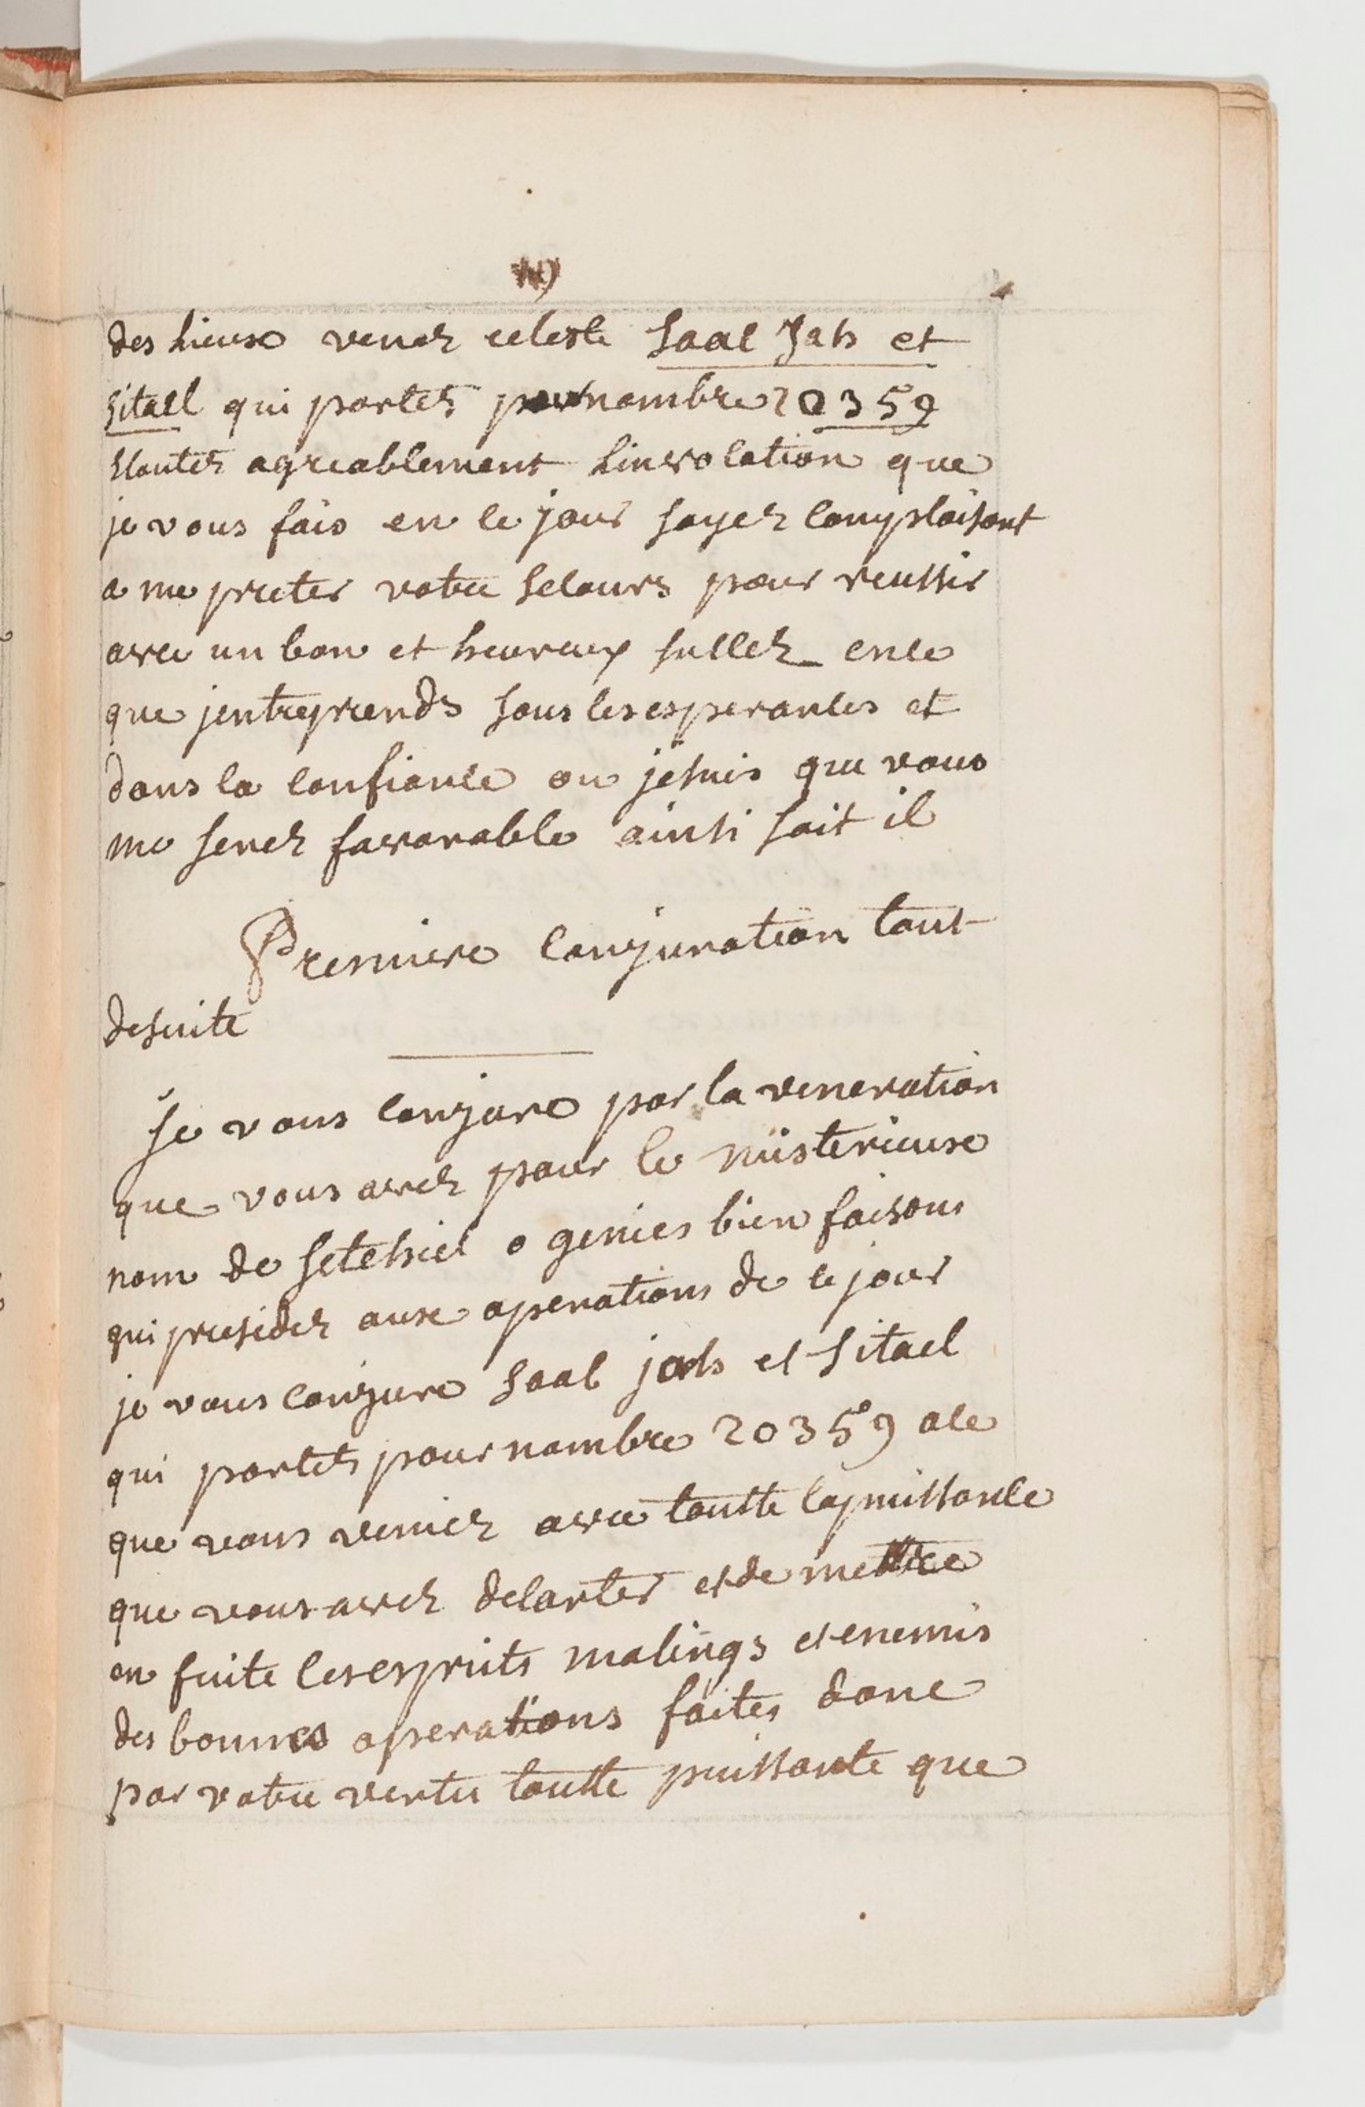 des lieux venez celeste Saal Jah et
Sitael qui portez pour nombre 20359
ecoutez agreablement linvocation que
je vous fais en ce jour soyez complaisant
a me preter votre secours pour reussir
avec un bon et heureux succez en ce
que jentreprends sous les esperances et
dans la confiance ou je suis que vous
me serez favorable ainsi soit il
Premiere conjuration tout
de suite
Je vous conjure par la veneration
que vous avez pour le misterieuse
nom de Setehiel o genies bien faisons
qui presidez aux operations de ce jour
je vous conjure Saal jah et Sitael
qui portez pour nombre 20359 a ce
que vous veniez avec toutte la puissance
que vous avez decarter et de mettre
en fuite les esprits malings et enemis
des bonnes operations faites donc
par votre vertu toutte puissante que